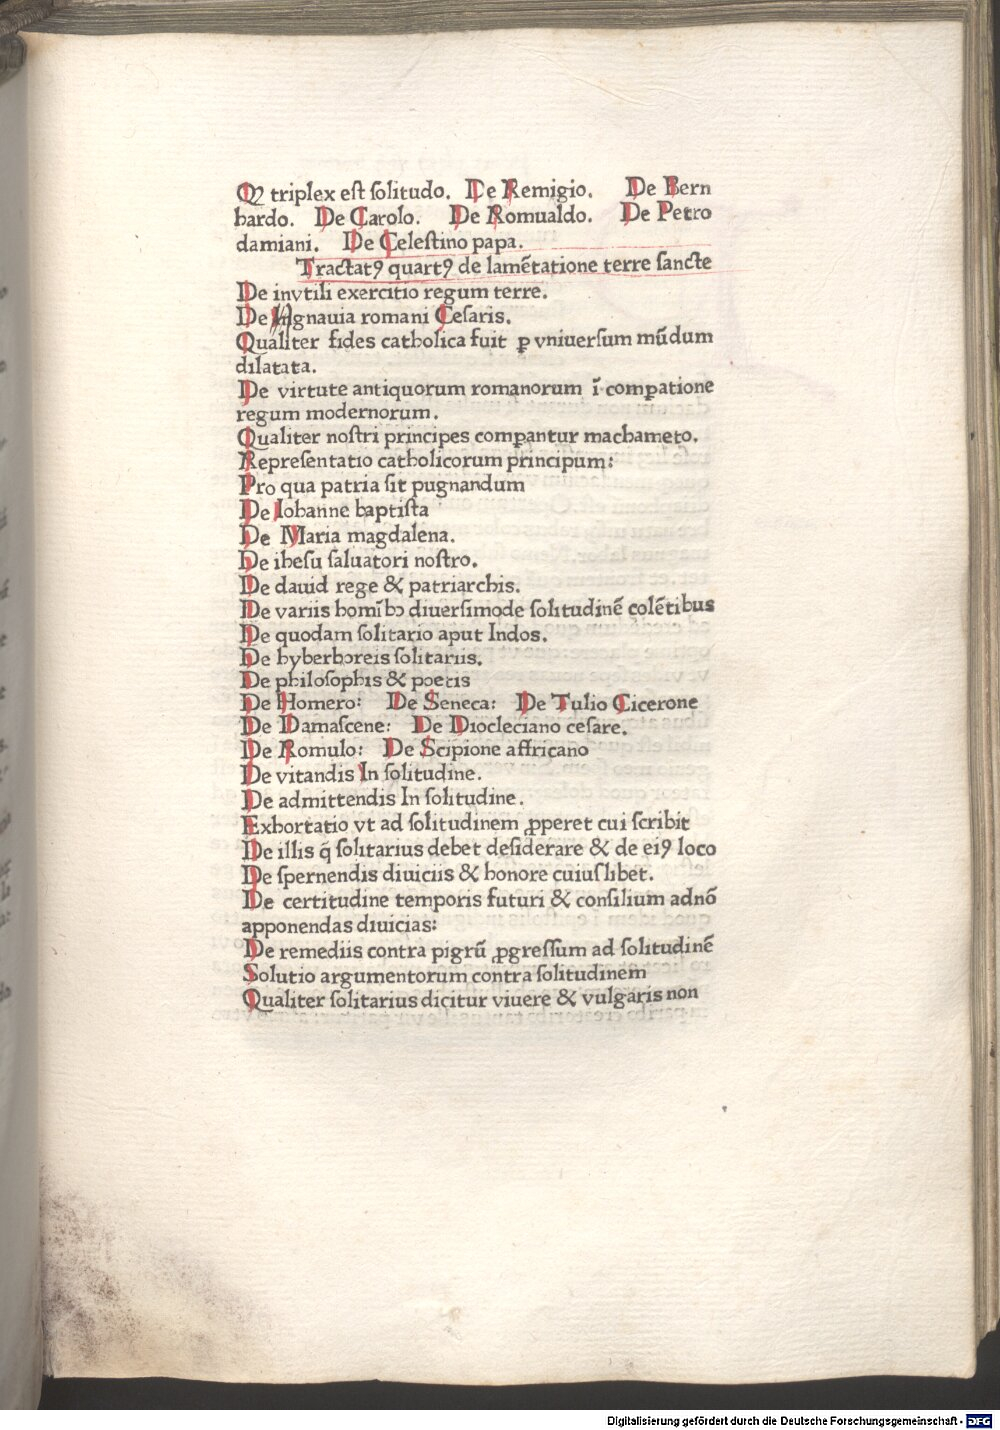 Qꝫ triplex est solitudo. De Remigio. De Bern
hardo. De Carolo. De Romualdo. De Petro
damiani. De Celestino papa.
Tractatꝰ quartꝰ de lamētatione terre sancte
De invtili exercitio regum terre.
De Ignauia romani Cesaris.
Qualiter fides catholica fuit ꝑ vniuersum mūdum
dilatata.
De virtute antiquorum romanorum ī comꝑatione
regum modernorum.
Qualiter nostri principes comꝑantur machameto.
Representatio catholicorum principum:
Pro qua patria sit pugnandum
De Iohanne baptista
De Maria magdalena.
De ihesu saluatori nostro.
De dauid rege & patriarchis.
De variis homībꝫ diuersimode solitudinē colētibus
De quodam solitario aput Indos.
De hyberboreis solitariis.
De philosophis & poetis
De Homero: De Seneca: De Tulio Cicerone
De Damascene: De Diocleciano cesare.
De Romulo: De Scipione affricano
De vitandis In solitudine.
De admittendis In solitudine.
Exhortatio vt ad solitudinem ꝓperet cui scribit
De illis q̄ solitarius debet desiderare & de eiꝰ loco
De spernendis diuiciis & honore cuiuslibet.
De certitudine temporis futuri & consilium ad nō
apponendas diuicias:
De remediis contra pigrū ꝓgressum ad solitudinē
Solutio argumentorum contra solitudinem
Qualiter solitarius dicitur viuere & vulgaris non
Digitalisierung gefördert durch die Deutsche Forschungsgemeinschaft - DFG